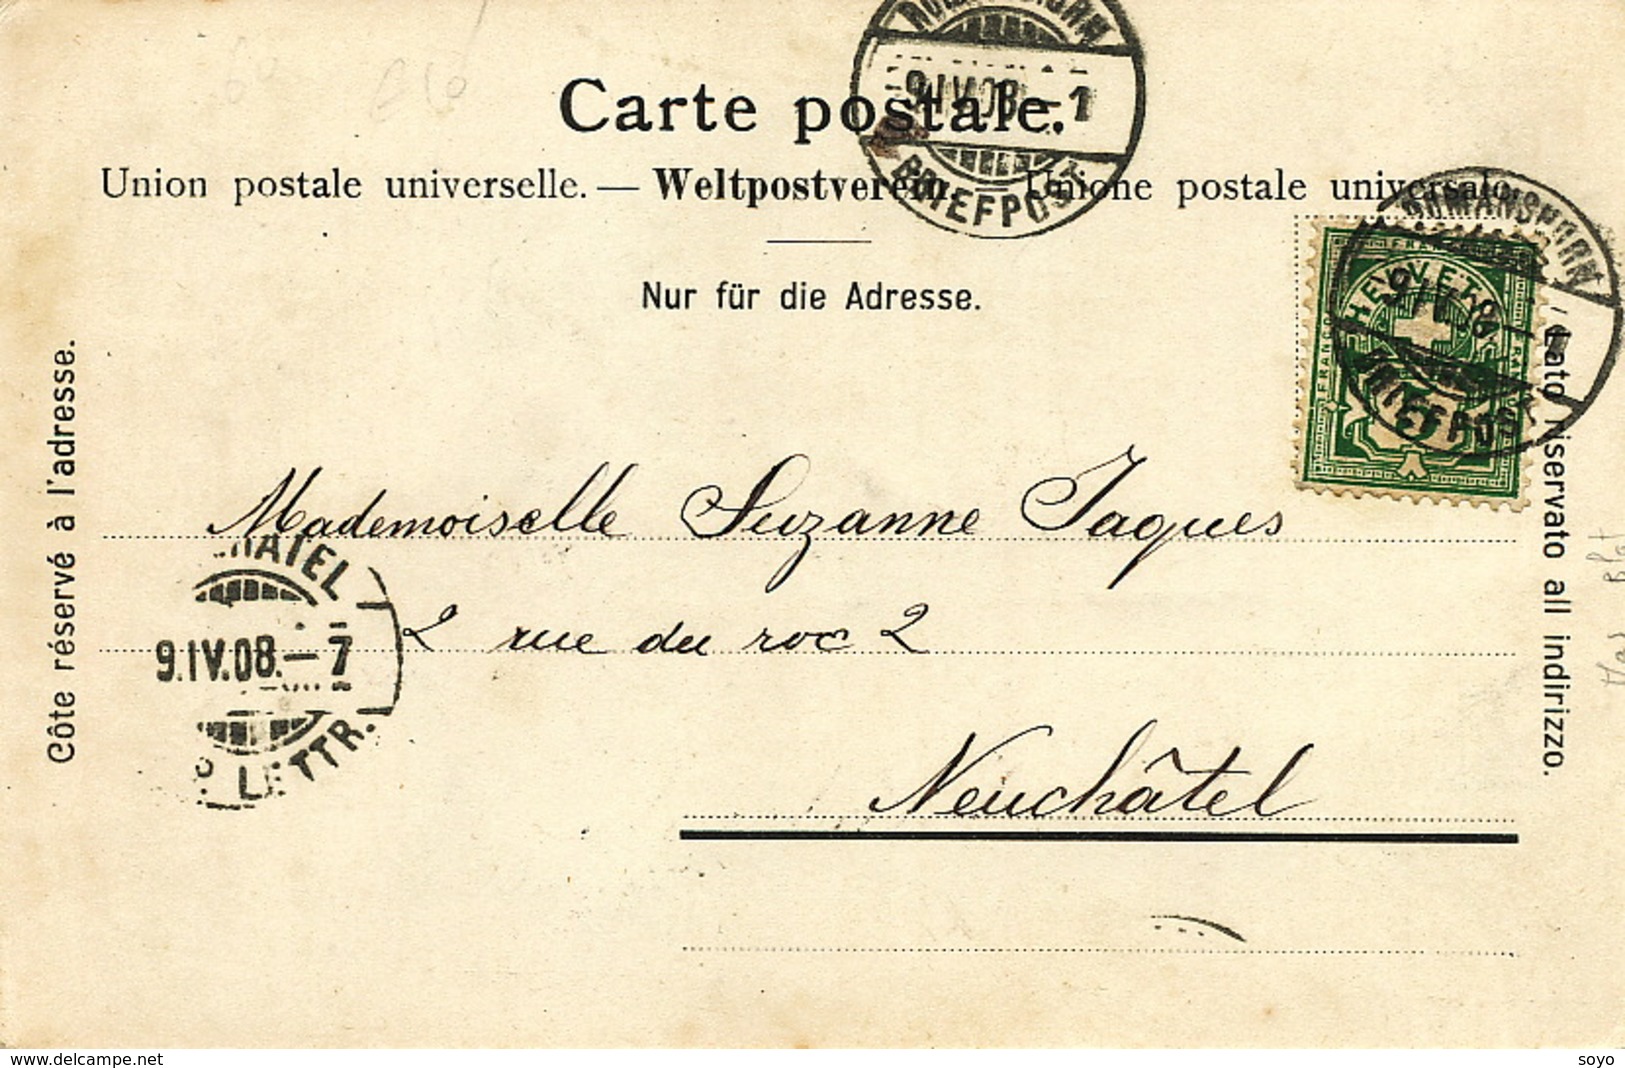 Carte postale.
Union postale universelle. — Weltpostverein. — Unione postale universale.
Nur für die Adresse.
Côte réservé à l'adresse.
Lato riservato all indirizzo.
ROMANSHORN
9.IV.08.–1
BRIEFPOST
ROMANSHORN
BRIEFPOST
FRANCO
HELVETIA
5
Mademoiselle Suzanne Jaques
2 rue du roc 2
Neuchâtel
HATEL
9.IV.08.–7
LETTR.
www.delcampe.net
soyo